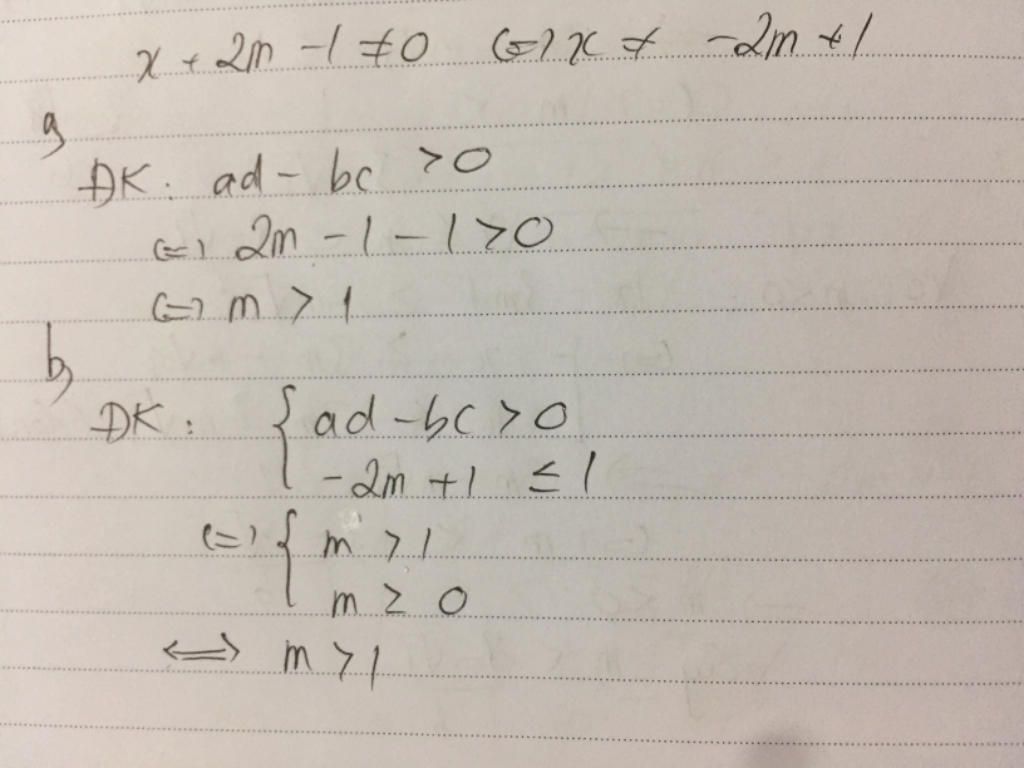 x + 2m - 1 ≠ 0 <=> x ≠ -2m + 1
a,
ĐK: ad - bc > 0
<=> 2m - 1 - 1 > 0
<=> m > 1
b,
ĐK: { ad - bc > 0
-2m + 1 ≤ 1
<=> { m > 1
m ≥ 0
<=> m > 1